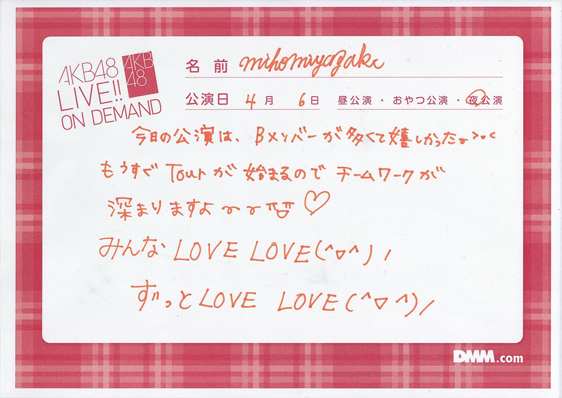 AKB48
LIVE!!
ON DEMAND
AKB
48
名前 mihomiyazaki
公演日 4月 6日 昼公演・おやつ公演・夜公演
今日の公演は、Bメンバーが多くて嬉しかったょ>_<
もうすぐ Tourが 始まるので チームワークが
深まりますよ~~ ♡
みんな LOVE LOVE(^▽^)ノ
ずっと LOVE LOVE(^▽^)ノ
DMM.com